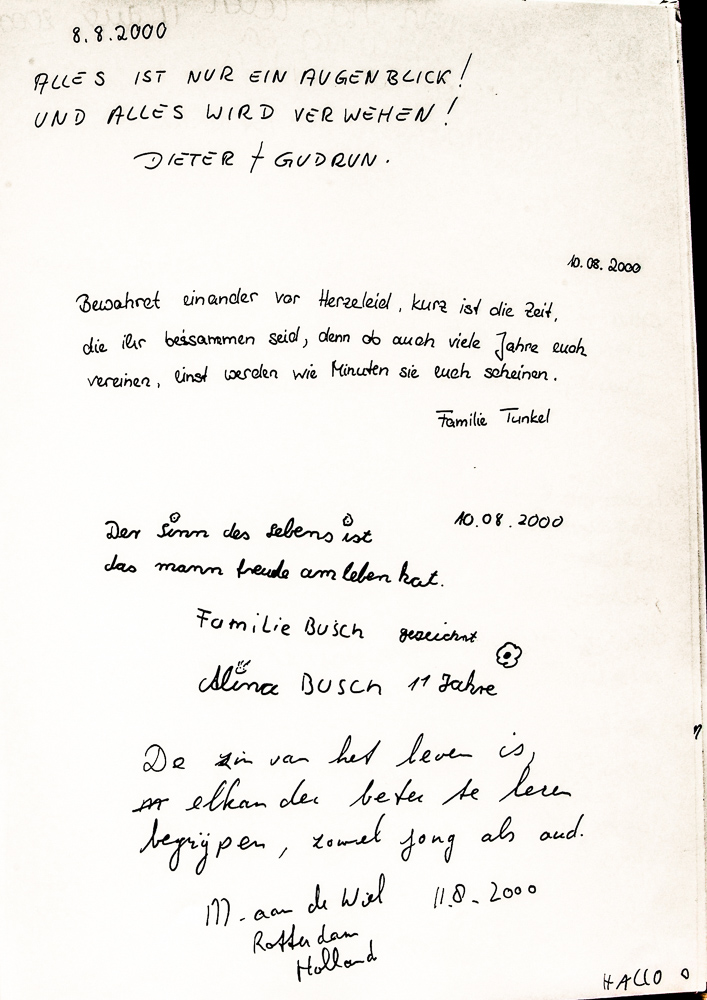 8.8.2000
ALLES IST NUR EIN AUGENBLICK!
UND ALLES WIRD VERWEHEN!
DIETER + GUDRUN.
10.08.2000
Bewahret einander vor Herzeleid, kurz ist die Zeit,
die ihr beisammen seid, denn ob auch viele Jahre euch
vereinen, einst werden wie Minuten sie euch scheinen.
Familie Tunkel
10.08.2000
Der Sinn des Lebens ist
das mann freude am leben hat.
Familie Busch gezeichnt
Alina BUSCH 11 Jahre
De zin van het leven is,
elkander beter te leren
begrijpen, zowel jong als oud.
M. aan de Wiel 11.8.2000
Rotterdam
Holland
HALLO